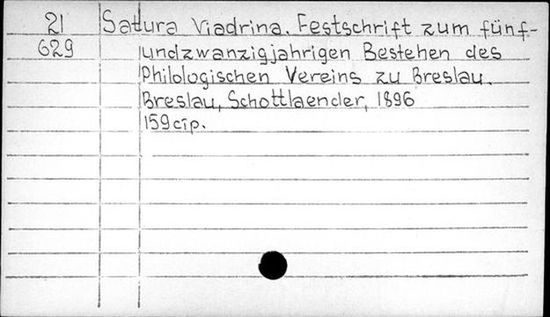 21 Satura Viadrina. Festschrift zum fünf-
629 undzwanzigjahrigen Bestehen des
Philologischen Vereins zu Breslau.
Breslau, Schottlaender, 1896
159 cip.